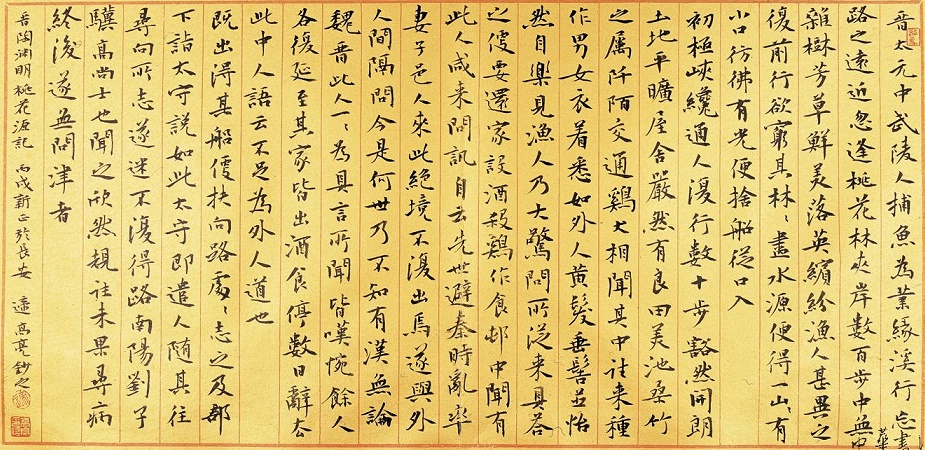 晋太元中武陵人捕魚為業緣溪行忘
路之遠近忽逢桃花林夾岸數百步中無
雜樹芳草鮮美落英繽紛漁人甚異之
復前行欲窮其林〻盡水源便得一山〻有
小口彷彿有光便捨船從口入
初極峽纔通人復行數十步豁然開朗
土地平曠屋舍嚴然有良田美池桑竹
之屬阡陌交通鷄犬相聞其中往来種
作男女衣着悉如外人黄髮垂髫並怡
然自樂見漁人乃大驚問所從来具答
之便要還家設酒殺鷄作食邨中聞有
此人咸来問訊自云先世避秦時亂率
妻子邑人来此絕境不復出焉遂與外
人間隔問今是何世乃不知有漢無論
魏晋此人一〻為具言所聞皆嘆惋餘人
各復延至其家皆出酒食停數日辭去
此中人語云不足為外人道也
既出得其船便扶向路處〻志之及郡
下詣太守說如此太守即遣人随其往
尋向所志遂迷不復得路南陽劉子
驥高尚士也聞之欣然規往未果尋病
終後遂無問津者
晋陶淵明桃花源記 丙戌新正於長安 高亮鈔之